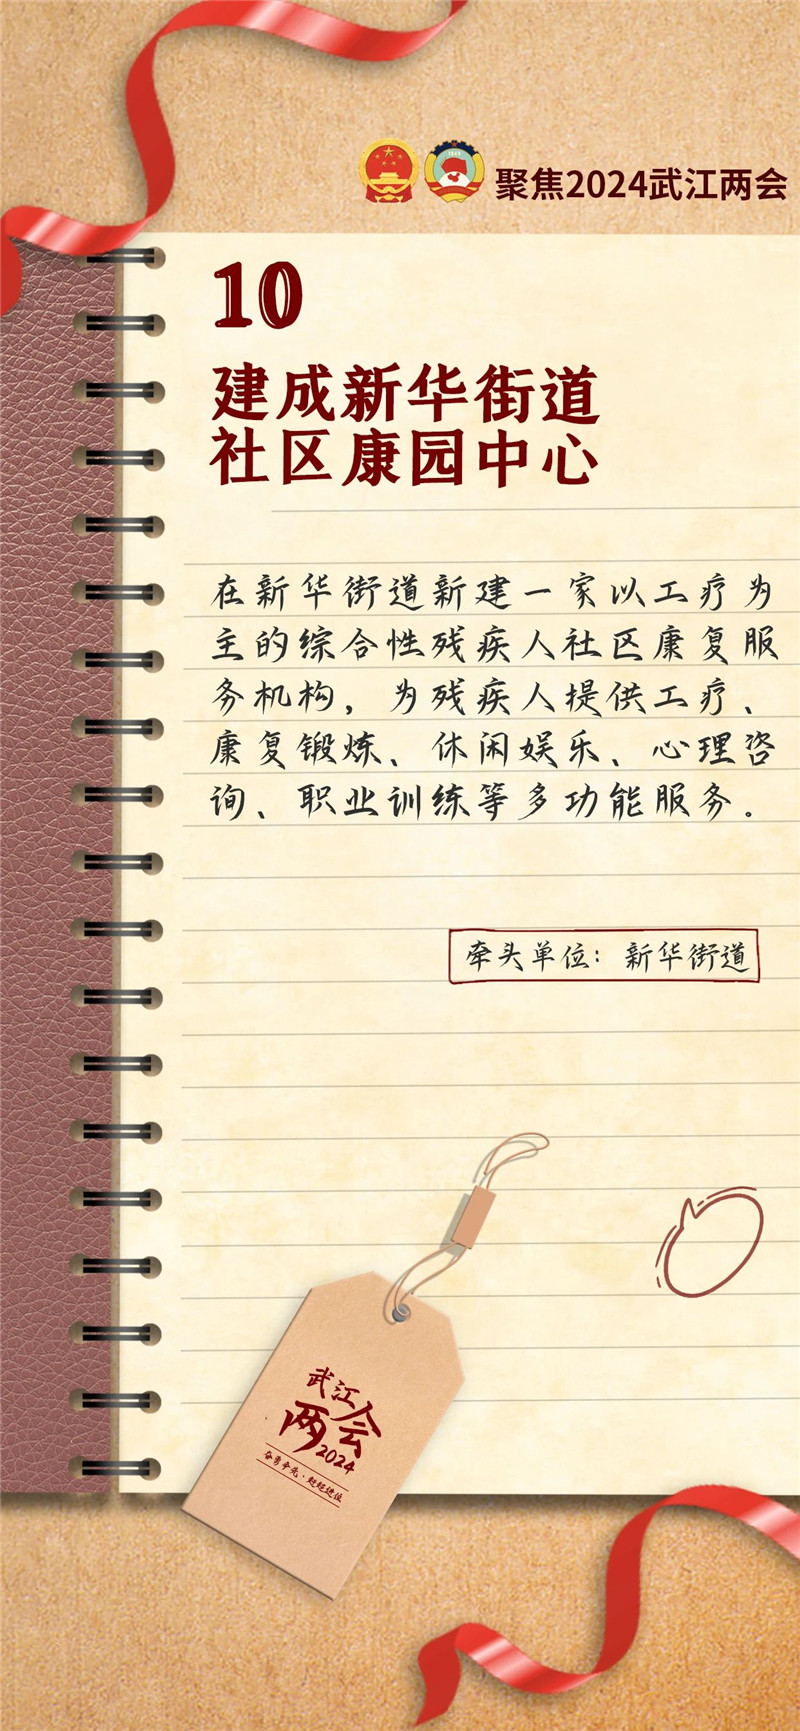 聚焦2024武江两会
10
建成新华街道
社区康园中心
在新华街道新建一家以工疗为
主的综合性残疾人社区康复服
务机构，为残疾人提供工疗、
康复锻炼、休闲娱乐、心理咨
询、职业训练等多功能服务。
牵头单位：新华街道
武江
两会
2024
奋勇争先·赶超进位